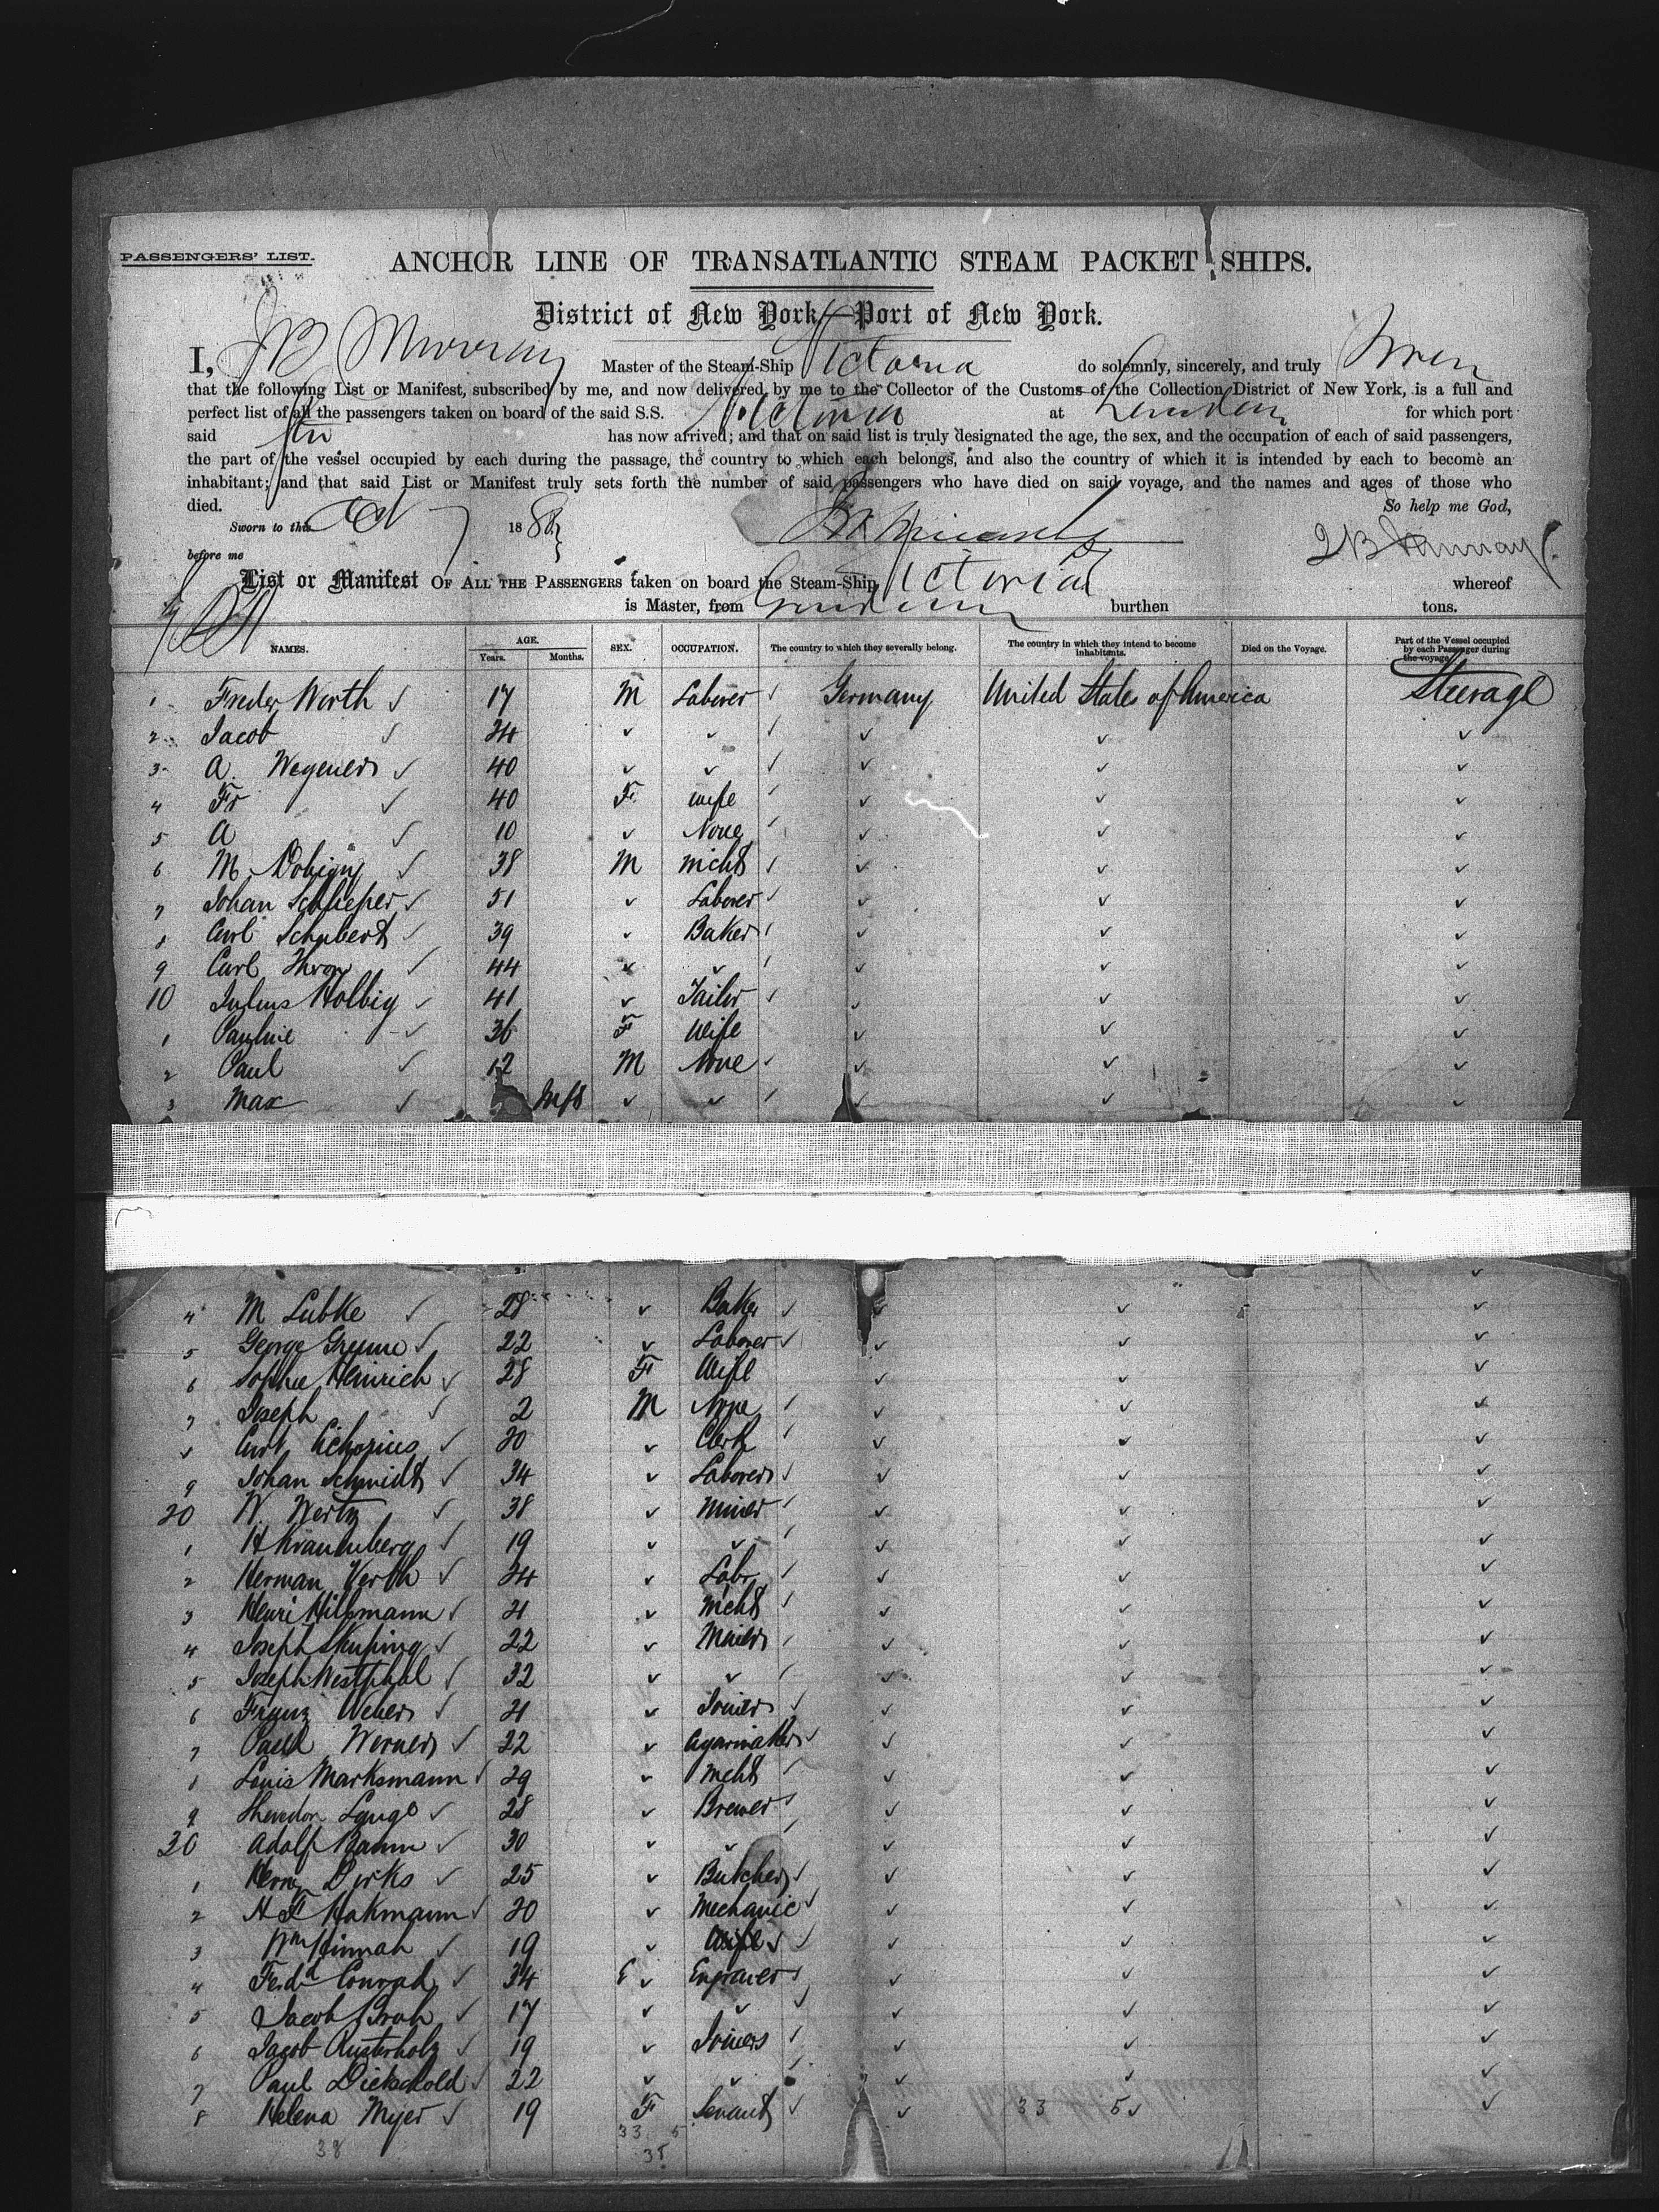 PASSENGERS' LIST.
ANCHOR LINE OF TRANSATLANTIC STEAM PACKET SHIPS.
District of New York—Port of New York.
I, J B Murray Master of the Steam-Ship Victoria do solemnly, sincerely, and truly swear
that the following List or Manifest, subscribed by me, and now delivered by me to the Collector of the Customs of the Collection District of New York, is a full and
perfect list of all the passengers taken on board of the said S.S. Victoria at London for which port
said has now arrived; and that on said list is truly designated the age, the sex, and the occupation of each of said passengers,
the part of the vessel occupied by each during the passage, the country to which each belongs, and also the country of which it is intended by each to become an
inhabitant; and that said List or Manifest truly sets forth the number of said passengers who have died on said voyage, and the names and ages of those who
died. So help me God,
Sworn to this Oct 7 188
before me J B Murray
List or Manifest OF ALL THE PASSENGERS taken on board the Steam-Ship Victoria whereof
is Master, from London burthen tons.
NAMES. AGE. Years. Months. SEX. OCCUPATION. The country to which they severally belong. The country in which they intend to become inhabitants. Died on the Voyage. Part of the Vessel occupied by each Passenger during the voyage
1 Freder Werth ✓ 17 M Laborer Germany United States of America Steerage
2 Jacob ✓ 24 ✓ ✓ ✓ ✓ ✓
3 A. Wegener ✓ 40 ✓ ✓ ✓ ✓ ✓
4 Fr ✓ 40 F wife ✓ ✓ ✓
5 A ✓ 10 ✓ None ✓ ✓ ✓
6 M. ✓ 38 M mcht ✓ ✓ ✓
7 Johan Schlieper ✓ 51 ✓ Laborer ✓ ✓ ✓
8 Carl Schubert ✓ 39 ✓ Baker ✓ ✓ ✓
9 Carl ✓ 44 ✓ ✓ ✓ ✓ ✓
10 Julius Holbig ✓ 41 ✓ Tailor ✓ ✓ ✓
1 Pauline ✓ 36 F Wife ✓ ✓ ✓
2 Paul ✓ 12 M None ✓ ✓ ✓
3 Max ✓ ✓ ✓ ✓ ✓ ✓
4 M Lubke ✓ 28 ✓ Baker ✓ ✓ ✓
5 George Grume ✓ 22 ✓ Laborer ✓ ✓ ✓
6 Sophie Heinrich ✓ 28 F Wife ✓ ✓ ✓
7 Joseph ✓ 2 M None ✓ ✓ ✓
8 Curt Cichorius ✓ 20 ✓ Clerk ✓ ✓ ✓
9 Johan Schmidt ✓ 34 ✓ Laborer ✓ ✓ ✓
20 W. Wertz ✓ 38 ✓ Miner ✓ ✓ ✓
1 H Kranenberg ✓ 19 ✓ ✓ ✓ ✓ ✓
2 Herman Verth ✓ 24 ✓ Labr ✓ ✓ ✓
3 Henri Hillsmann ✓ 21 ✓ mcht ✓ ✓ ✓
4 Joseph Skuping ✓ 22 ✓ Miner ✓ ✓ ✓
5 Joseph Westphal ✓ 32 ✓ ✓ ✓ ✓ ✓
6 Franz Weber ✓ 21 ✓ Joiner ✓ ✓ ✓
7 Paul Werner ✓ 22 ✓ ✓ ✓ ✓
8 Louis Marksmann ✓ 29 ✓ mcht ✓ ✓ ✓
9 Lange ✓ 28 ✓ Brewer ✓ ✓ ✓
30 Adolf Baum ✓ 30 ✓ ✓ ✓ ✓ ✓
1 Henry Dirks ✓ 25 ✓ Butcher ✓ ✓ ✓
2 H F Hakmann ✓ 20 ✓ Mechanic ✓ ✓ ✓
3 Wm Hinnah ✓ 19 ✓ Wife ✓ ✓ ✓
4 Ferd Conrad ✓ 34 ✓ Engraver ✓ ✓ ✓
5 Jacob ✓ 17 ✓ ✓ ✓ ✓ ✓
6 Jacob Austerholz ✓ 19 ✓ Joiner ✓ ✓ ✓
7 Paul Dickschold ✓ 22 ✓ ✓ ✓ ✓ ✓
8 Helena Myer ✓ 19 F Servant ✓ 33 5 ✓
38 33 5
38